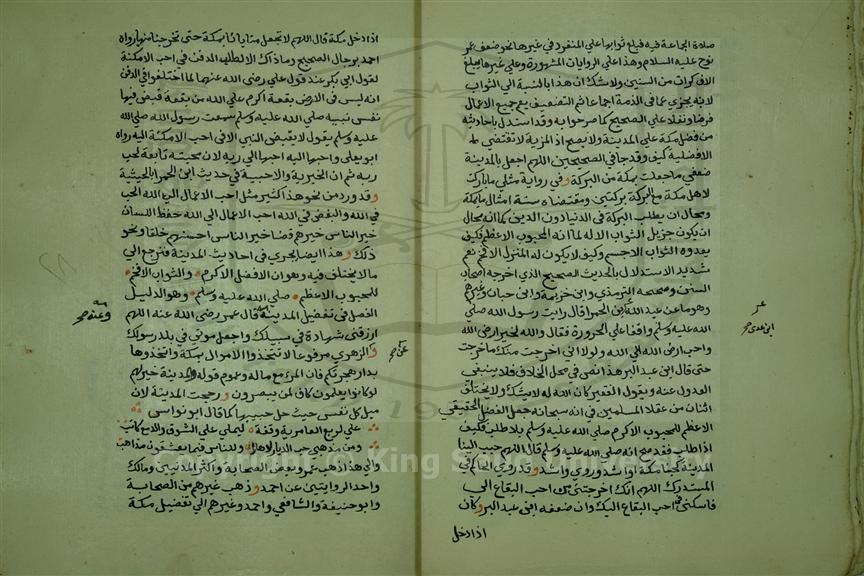 صلاة الجماعة فيه فبلغ ثوابها على المنفرد في غيرها نحو ضعف عمر
نوح عليه السلام وهذا على الروايات المشهورة وعلى غيرها يبلغ
الاف كرات من السنين ولا شك ان هذا بالنسبة الى الثواب
لانه يجزي عما في الذمة اجماعا ثم التضعيف يعم جميع الاعمال
فرضا ونفلا على الصحيح كما صرحوا به وقد استدل باحاديثه
من فضل مكة على المدينة ولا يصح اذ المزية لا تقتضي
الافضلية كيف وقد جا في الصحيحين اللهم اجعل بالمدينة
ضعفي ما جعلت بمكة من البركة وفي رواية مثلي ما بارك
لاهل مكة مع البركة بركتين ومقتضاه ستة امثال ما بمكة
ومحال ان يطلب البركة في الدنيا دون الدين كما انه محال
ان يكون جزيل الثواب الا له لما انه المحبوب الاعظم فكيف
يعدوه الثواب الاجسم وكيف لا يكون له المنزل الافخم نعم
شديد الاستدلال بالحديث الصحيح الذي اخرجه اصحاب
السنن وصححه الترمذي وابن خزيمة وابن حبان وغيرهم
وهو ما عن عبد الله بن الحمرا قال رايت رسول الله صلى
الله عليه وسلم واقفا على الحزورة فقال والله لخير ارض الله
واحب ارض الله الى الله ولولا اني اخرجت منك ما خرجت
حتى قال ابن عبد البر هذا انص في محل الخلاف فلا ينبغي
العدول عنه ويقول الفقير كان الله له لا يشك ولا يختلق
اثنان من عقلا المسلمين في انه سبحانه جعل الفضل الحقيقي
الاعظم للمحبوب الاكرم صلى الله عليه وسلم بلا طلب فكيف
اذا طلب فقد صح انه صلى الله عليه وسلم قال اللهم حبب الينا
المدينة كحبنا مكة او اشد وروي واشد وقد روي الحاكم في
المستدرك اللهم انك اخرجتني من احب البقاع الي
فاسكني في احب البقاع اليك وان ضعفه ابن عبد البر وكان
اذا دخل
اذا دخل مكة قال اللهم لا تجعل منايانا بمكة حتى تخرجنا منها رواه
احمد برجال الصحيح وما ذاك الا لطلب الدفن في احب الامكنة
لقول ابي بكر عند قول علي رضي الله عنهما لما اختلفوا في الدفن
انه ليس في الارض بقعة اكرم على الله من بقعة قبض فيها
نفس نبيه صلى الله عليه وسلم سمعت رسول الله صلى الله
عليه وسلم يقول لا يقبض النبي الا في احب الامكنة اليه رواه
ابو يعلى واحبها اليه احبها الى ربه لان محبته تابعة لحب
ربه ثم ان الخيرية والاحبية في حديث ابن الحمرا بالحيثية
وقد ورد من نحو هذا كثير مثل احب الاعمال الى الله الحب
في الله والبغض في الله احب الاعمال الى الله حفظ اللسان
خير الناس خيرهم قضا خير الناس احسنهم خلقا ونحو
ذلك وهذا ايضا يجري في احاديث المدينة فنرجع الى
ما لا يختلف فيه وهو ان الافضل الاكرم والثواب الافخم
للمحبوب الاعظم صلى الله عليه وسلم وهو الدليل
الفصل في تفضيل المدينة قال عمر رضي الله عنه اللهم
ارزقني شهادة في سبيلك واجعل موتي في بلد رسولك
والزهري مرفوعا لا تتخذوا الاموال بمكة واتخذوها
بدار هجرتكم فان المرء مع ماله وعموم قوله والمدينة خير لهم
لو كانوا يعلمون كاف لمن يبصرون ورجحت المدينة لان
ميل كل نفس حيث حل حبيبها كما قال ابو نواس
على لربع العامرية وقفة ليملي على الشوق والدمع كاتب
ومن مذهبي حب الديار لاهلها وللناس فيما يعشقون مذاهب
والى هذا ذهب عمر وبعض الصحابة واكثر المدنيين ومالك
واحد الروايتين عن احمد وذهب غيرهم من الصحابة
وابو حنيفة والشافعي واحمد وغيرهم الى تفضيل مكة